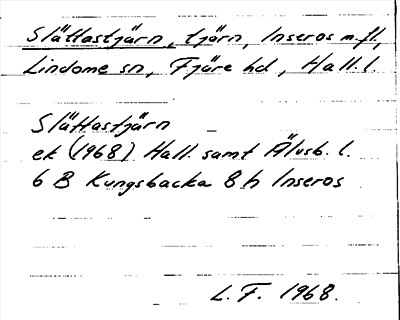 Slättastjärn, tjärn, Inseros m.fl,
Lindome sn, Fjäre hd, Hall. l.
Slättastjärn
ek (1968) Hall. samt Älvsb. l.
6 B Kungsbacka 8 h Inseros
L. F. 1968.